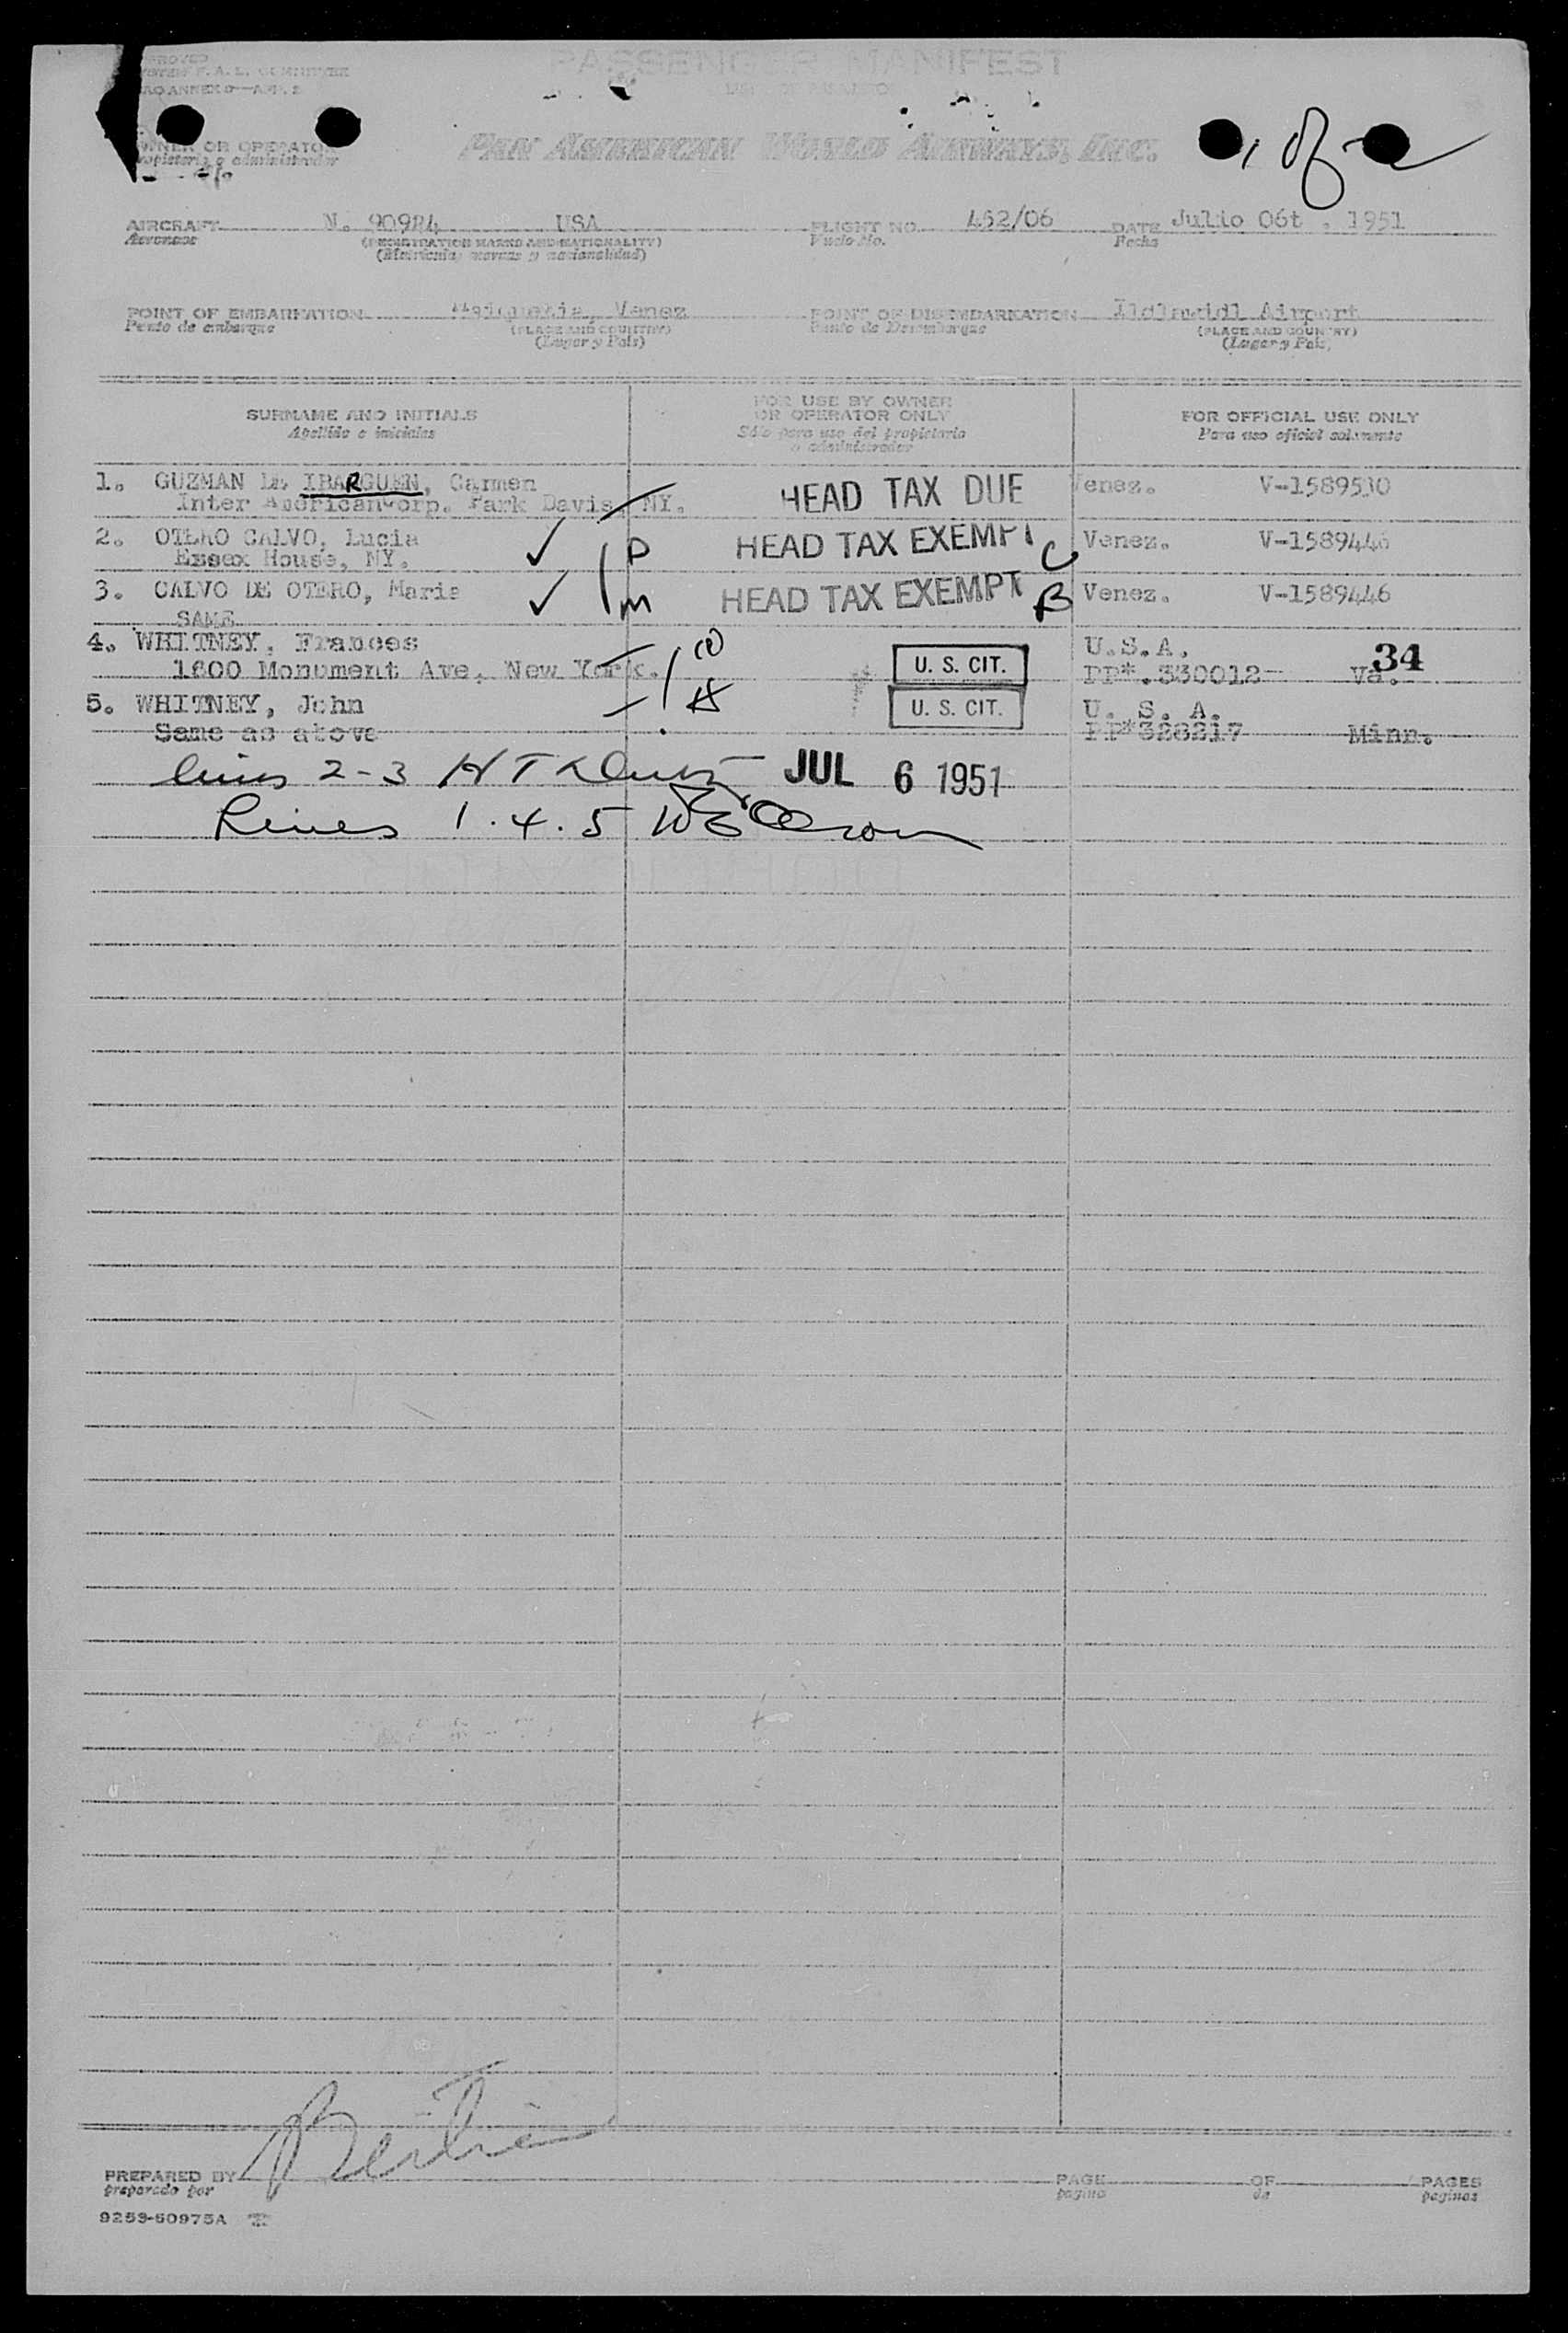 PASSENGER MANIFEST
OWNER OR OPERATOR PAN AMERICAN WORLD AIRWAYS, INC. 1 of 2
propietario o administrador
AIRCRAFT N. 90984 USA FLIGHT NO. 452/06 DATE Julio 06t . 1951
Aeronave (REGISTRATION MARKS AND NATIONALITY) Vuelo No. Fecha
(Matrícula, marcas y nacionalidad)
POINT OF EMBARKATION Maiquetia, Venez POINT OF DISEMBARKATION Idlewild Airport
Punto de embarque (PLACE AND COUNTRY) Punto de Desembarque (PLACE AND COUNTRY)
(Lugar y País) (Lugar y País)
SURNAME AND INITIALS FOR USE BY OWNER OR OPERATOR ONLY FOR OFFICIAL USE ONLY
Apellido e iniciales Sólo para uso del propietario o administrador Para uso oficial solamente
1. GUZMAN DE IBARGUEN, Carmen HEAD TAX DUE Venez. V-1589530
Inter American Corp. Park Davis, NY.
2. OTERO CALVO, Lucia P HEAD TAX EXEMPT C Venez. V-1589446
Essex House, NY.
3. CALVO DE OTERO, Maria M HEAD TAX EXEMPT B Venez. V-1589446
SAME
4. WHITNEY, Frances U. S. CIT. U.S.A. 34
1800 Monument Ave, New York. PP*.330012 Va.
5. WHITNEY, John U. S. CIT. U. S. A.
Same as above PP*328217 Minn.
lines 2-3 JUL 6 1951
Lines 1.4.5
PREPARED BY PAGE OF PAGES
preparado por pagina de paginas
9253-60975A